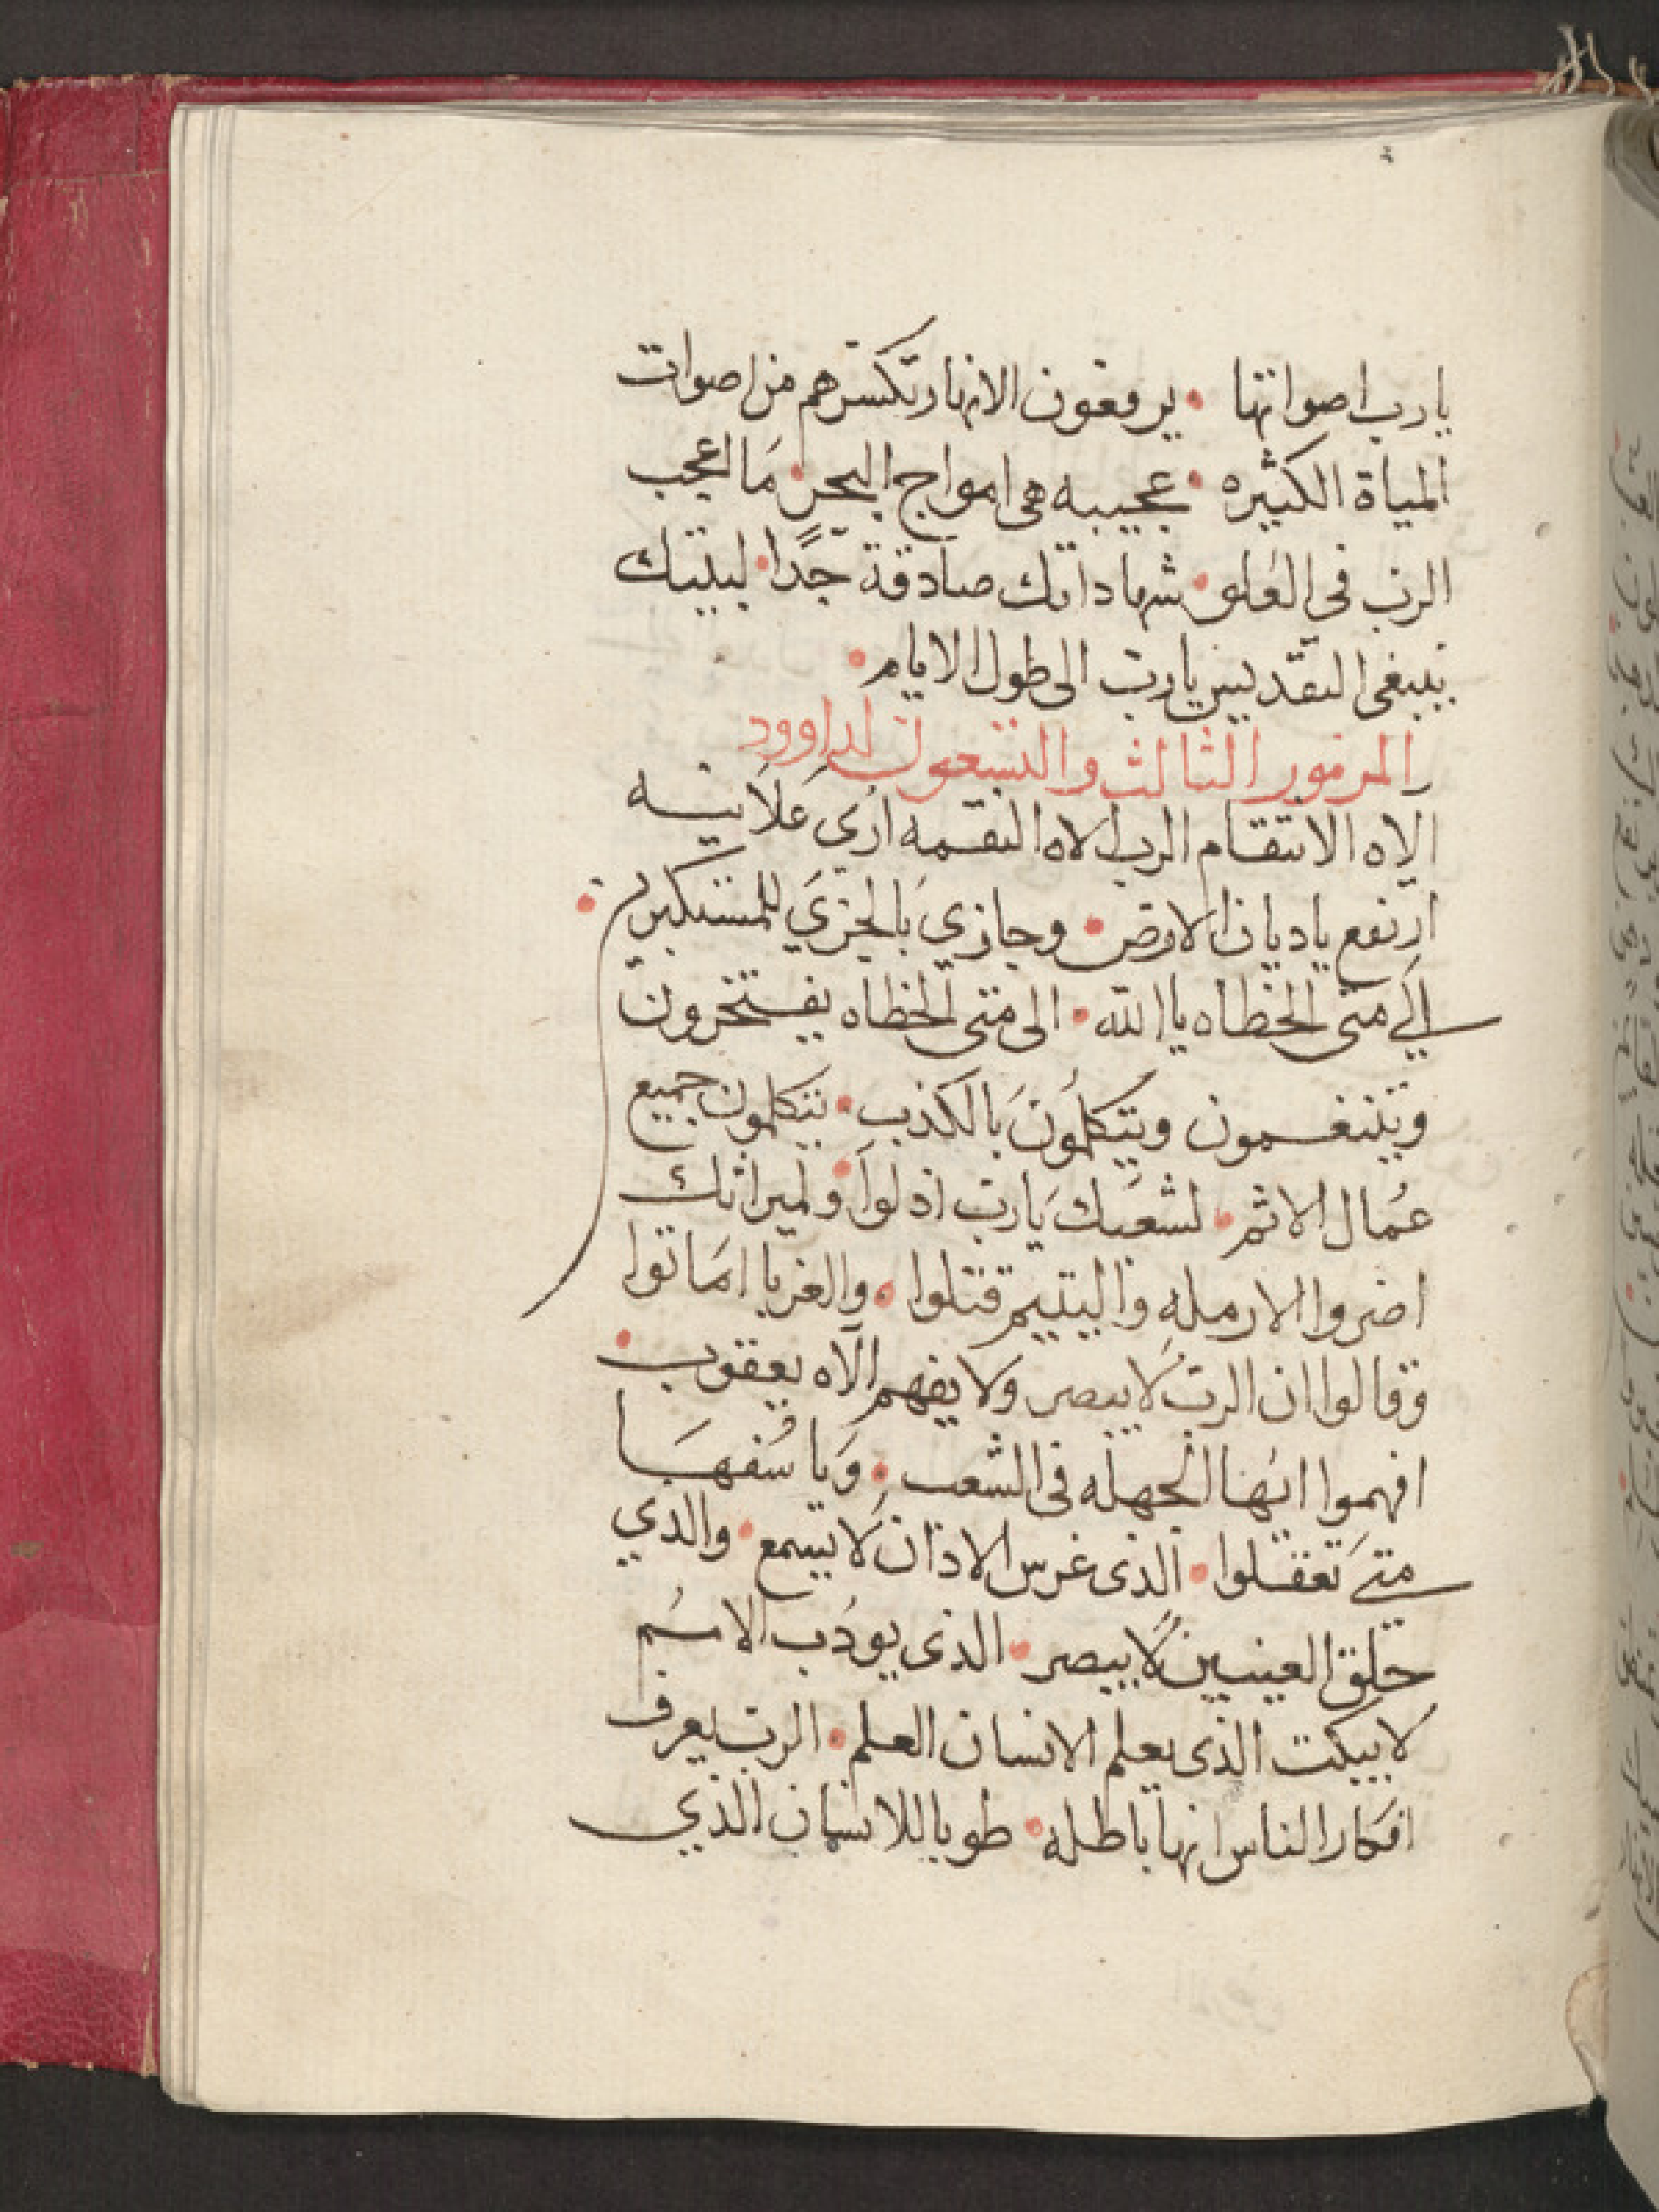 يارب اصواتها • يرفعون الانهار تكسرهم من اصوات
المياة الكثيره • عجيبه هى امواج البحر • مَا اعجب
الرب فى العُلى • شهاداتك صادقة جًدا • لبيتك
ينبغى التقديس يارب الى طول الايام •
المزمور الثالث والتسعون لداوود
الاه الانتقام الرب الاه النقمه ارُى عَلَانيه
ارتفع ياديان الارض • وجازي بَالجزيَ للمستكبرين •
الَي متى الخطاه يا الله • الى متى الخطاه يفتخرون
ويتنغمون ويتكلمُونَ بالكذب • يتكلمون جميع
عُمال الاثم • لشعبَك يَارب اذلوا • ولميراثك
اضروا الارمله واليتيم قتلوا • والغربا امَاتوا
وقالوا ان الرب لَا يبصر ولا يفهم الاه يعقوب •
افهموا ايُها الجهله فى الشعب • وَيا سُفهَا
متىَ تعقلوا • الذى غرس الاذان لَا يسمع • والذي
خلق العينين لًا يبصر • الذى يودُب الامُم
لا يبكت الذى يعلم الانسان العلم • الرب يعرف
افكار الناس انها باطله • طوبا للانسان الذي